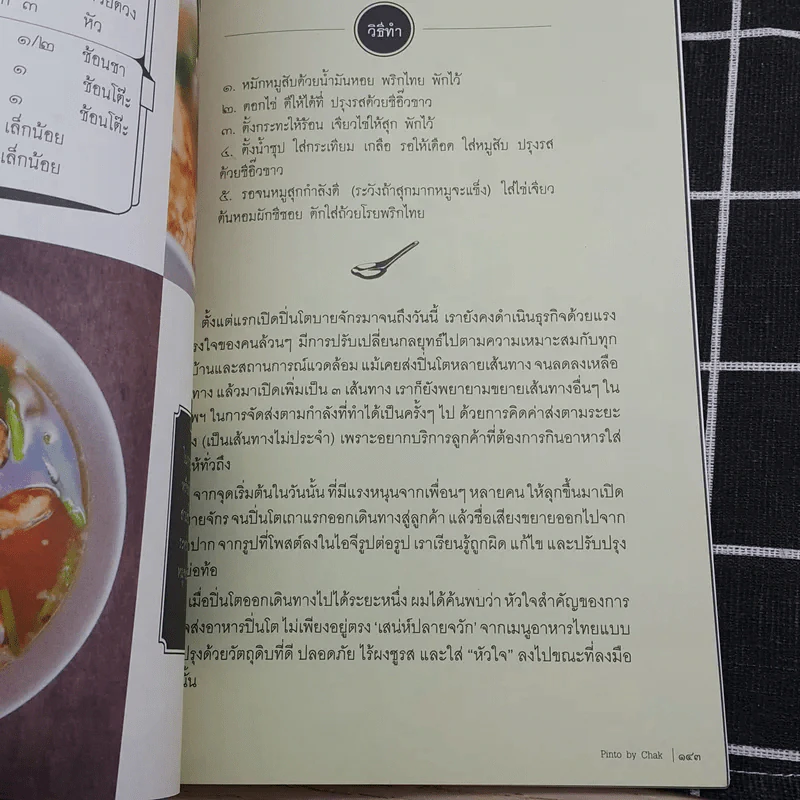 ๓ หัว
๑/๒ ช้อนชา
๑ ช้อนโต๊ะ
๑ ช้อนโต๊ะ
เล็กน้อย
เล็กน้อย
วิธีทำ
๑. หมักหมูสับด้วยน้ำมันหอย พริกไทย พักไว้
๒. ตอกไข่ ตีให้ได้ที่ ปรุงรสด้วยซีอิ๊วขาว
๓. ตั้งกระทะให้ร้อน เจียวไข่ให้สุก พักไว้
๔. ตั้งน้ำซุป ใส่กระเทียม เกลือ รอให้เดือด ใส่หมูสับ ปรุงรส
ด้วยซีอิ๊วขาว
๕. รอจนหมูสุกกำลังดี (ระวังถ้าสุกมากหมูจะแข็ง) ใส่ไข่เจียว
ต้นหอมผักชีซอย ตักใส่ถ้วยโรยพริกไทย
ตั้งแต่แรกเปิดปิ่นโตบายจักรมาจนถึงวันนี้ เรายังคงดำเนินธุรกิจด้วยแรง
แรงใจของคนล้วนๆ มีการปรับเปลี่ยนกลยุทธ์ไปตามความเหมาะสมกับทุก
บ้านและสถานการณ์แวดล้อม แม้เคยส่งปิ่นโตหลายเส้นทาง จนลดลงเหลือ
ทาง แล้วมาเปิดเพิ่มเป็น ๓ เส้นทาง เราก็ยังพยายามขยายเส้นทางอื่นๆ ใน
พฯ ในการจัดส่งตามกำลังที่ทำได้เป็นครั้งๆ ไป ด้วยการคิดค่าส่งตามระยะ
(เป็นเส้นทางไม่ประจำ) เพราะอยากบริการลูกค้าที่ต้องการกินอาหารใส่
ให้ทั่วถึง
จากจุดเริ่มต้นในวันนั้น ที่มีแรงหนุนจากเพื่อนๆ หลายคน ให้ลุกขึ้นมาเปิด
บายจักร จนปิ่นโตเถาแรกออกเดินทางสู่ลูกค้า แล้วชื่อเสียงขยายออกไปจาก
ปาก จากรูปที่โพสต์ลงในไอจีรูปต่อรูป เราเรียนรู้ถูกผิด แก้ไข และปรับปรุง
ย่อท้อ
เมื่อปิ่นโตออกเดินทางไปได้ระยะหนึ่ง ผมได้ค้นพบว่า หัวใจสำคัญของการ
ส่งอาหารปิ่นโต ไม่เพียงอยู่ตรง ‘เสน่ห์ปลายจวัก’ จากเมนูอาหารไทยแบบ
ปรุงด้วยวัตถุดิบที่ดี ปลอดภัย ไร้ผงชูรส และใส่ “หัวใจ” ลงไปขณะที่ลงมือ
นั้น
Pinto by Chak | ๑๔๓